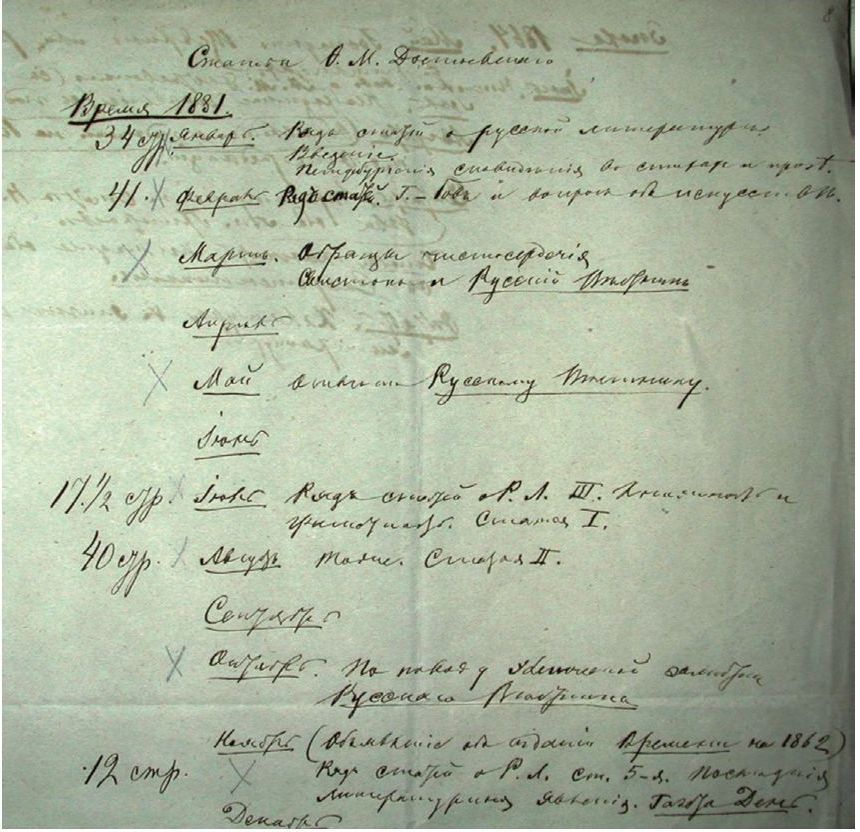 8
Статьи Ѳ. М. Достоевскаго
Время 1881.
34 стр. Январь. Рядъ статей о русской литературѣ.
Введеніе.
Петербургскія сновидѣнія въ стихахъ и прозѣ.
41. Февраль Рядъ статей. Г.–бовъ и вопросъ объ искусствѣ.
Мартъ. Образцы чистосердечія
Свистокъ и Русскій Вѣстникъ
Апрѣль
Май Отвѣтъ Русскому Вѣстнику.
Іюнь
17.1/2 стр. Іюль Рядъ статей о Р. Л. III. Книжность и
грамотность. Статья I.
40 стр. Августъ тоже. Статья II.
Сентябрь
Октябрь. По поводу элегической замѣтки
Русскаго Вѣстника
Ноябрь (Объявленіе объ изданіи Времени на 1862)
12 стр. Рядъ статей о Р. Л. ст. 5-я. Послѣднія
литературныя явленія. Газета День.
Декабрь